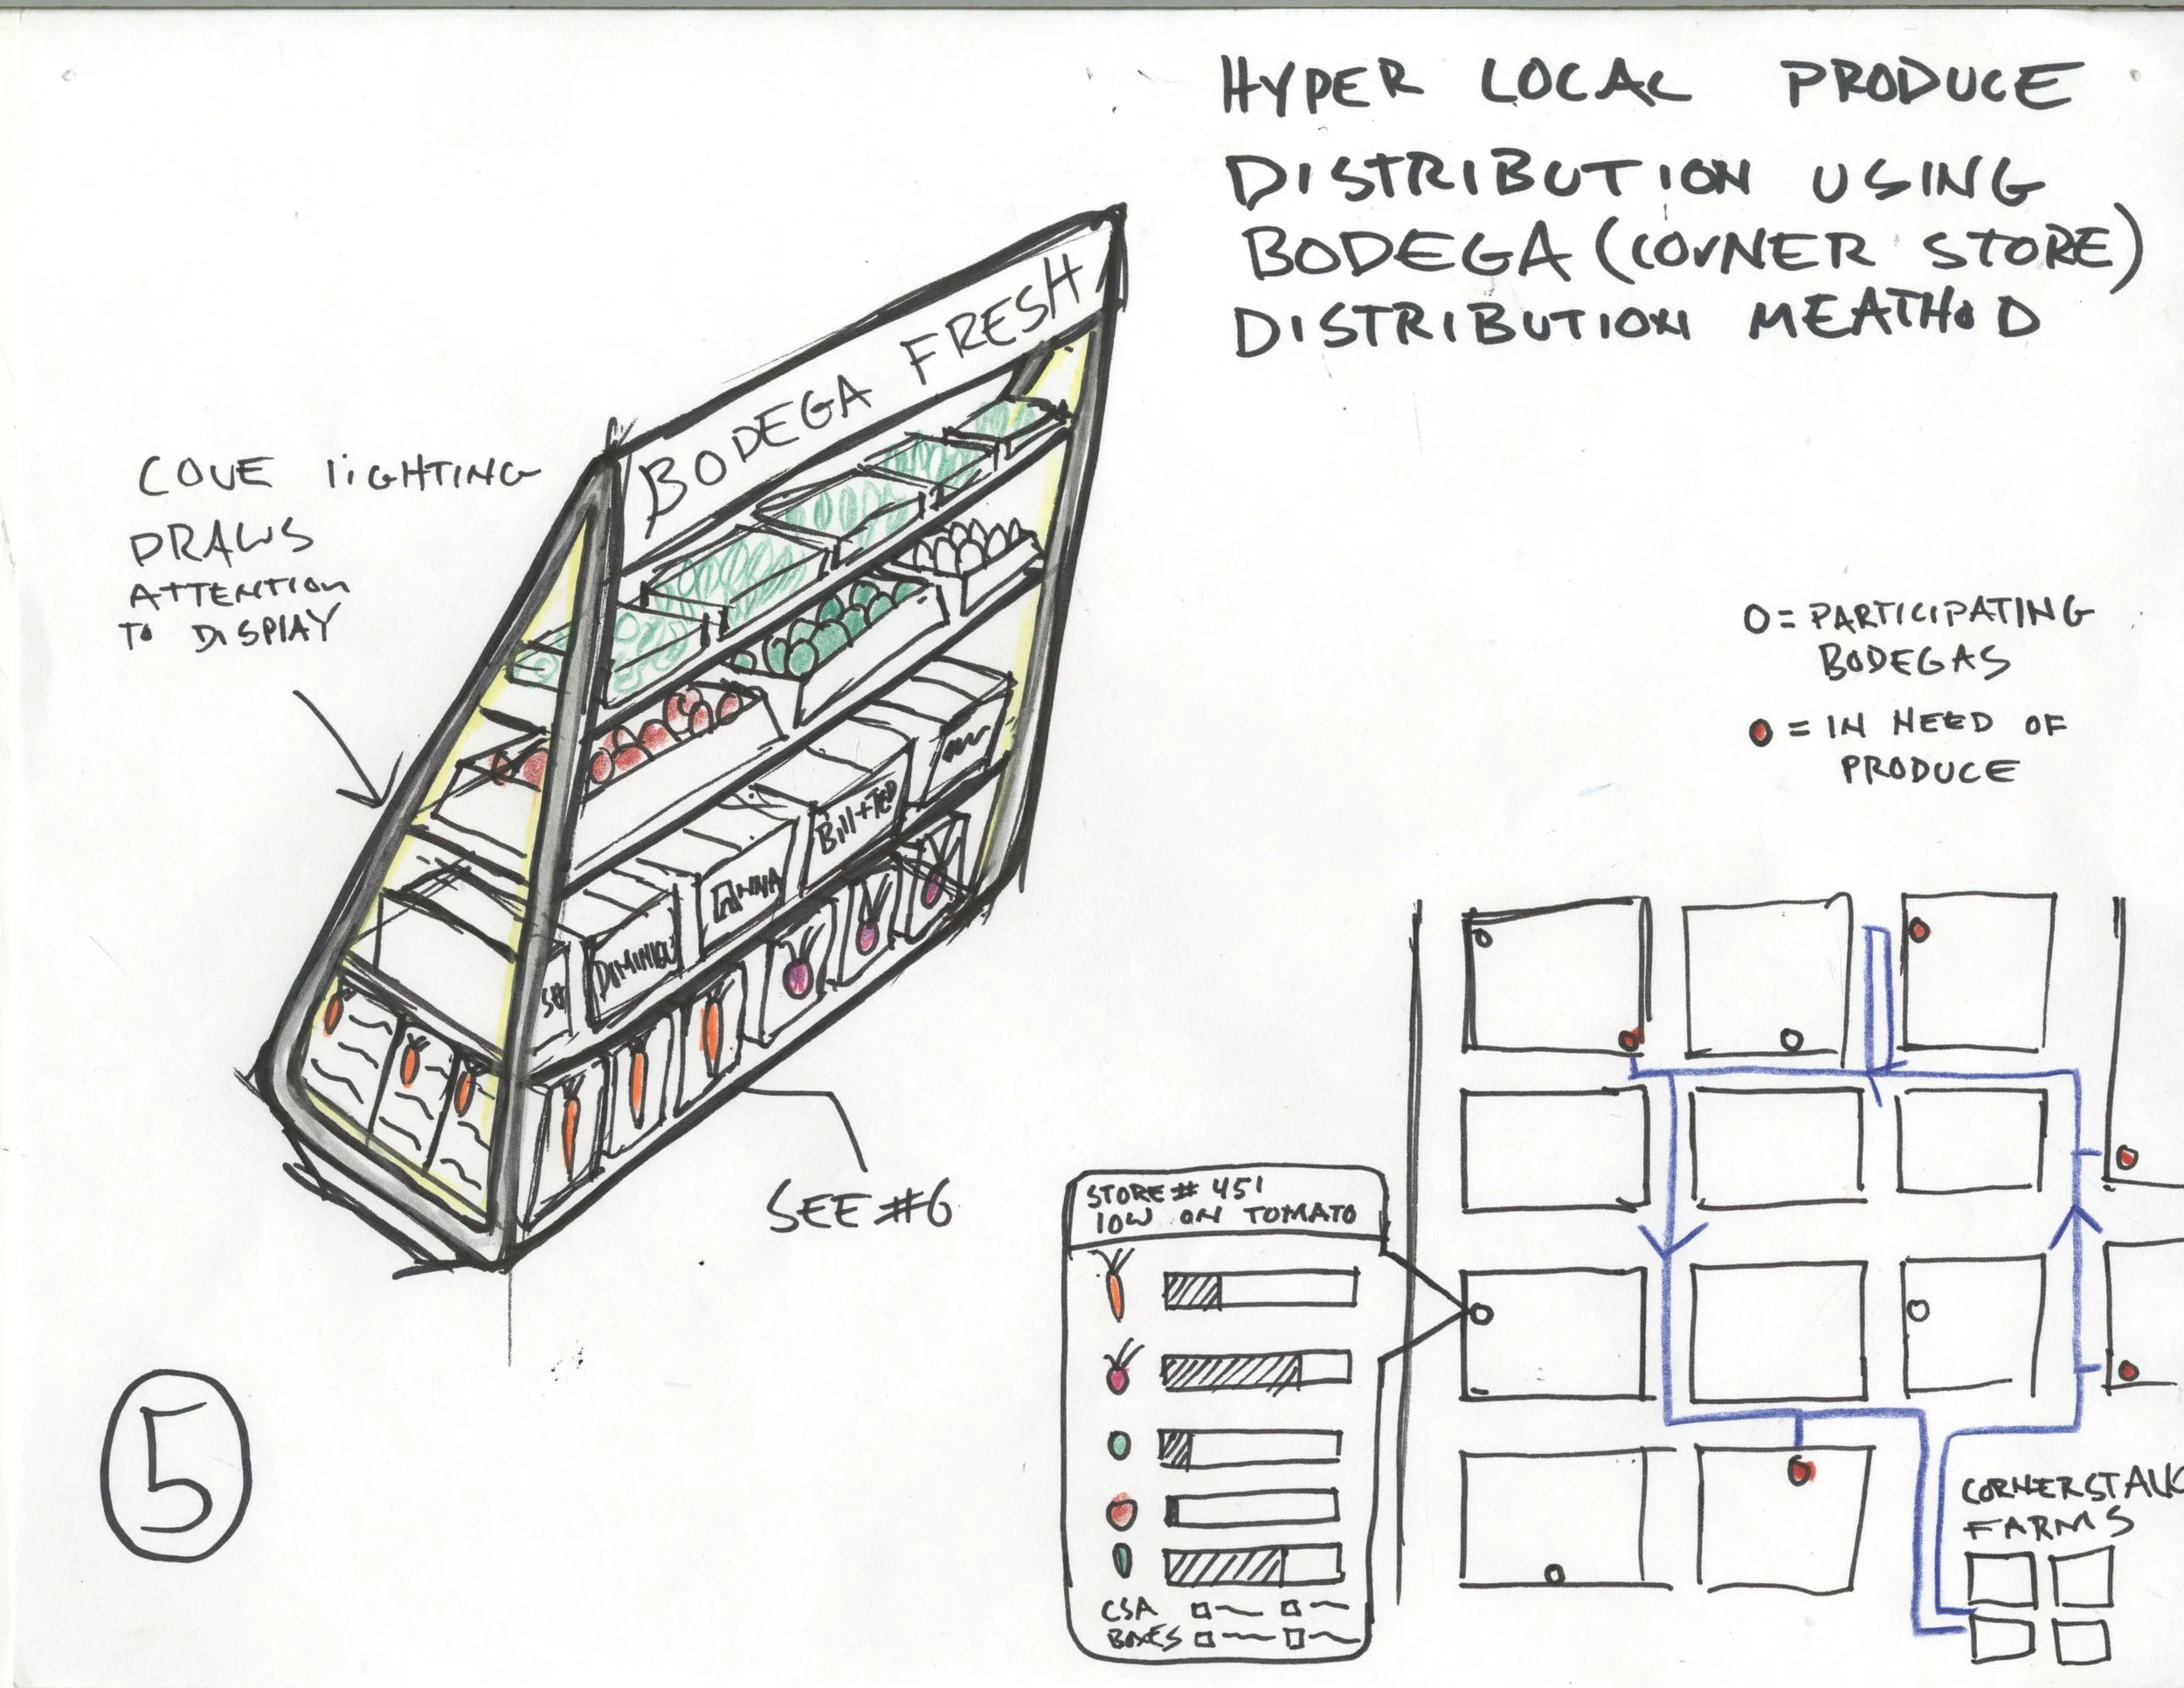 HYPER LOCAL PRODUCE
DISTRIBUTION USING
BODEGA (CORNER STORE)
DISTRIBUTION MEATHOD
BODEGA FRESH
COVE liGHTING
DRAWS
ATTENTION
TO DISPLAY
DIMINIQU
ANNA
Bill+TED
SEE #6
O = PARTICIPATING
BODEGAS
= IN NEED OF
PRODUCE
STORE # 451
lOW ON TOMATO
CSA
BOXES
CORNERSTALK
FARMS
5